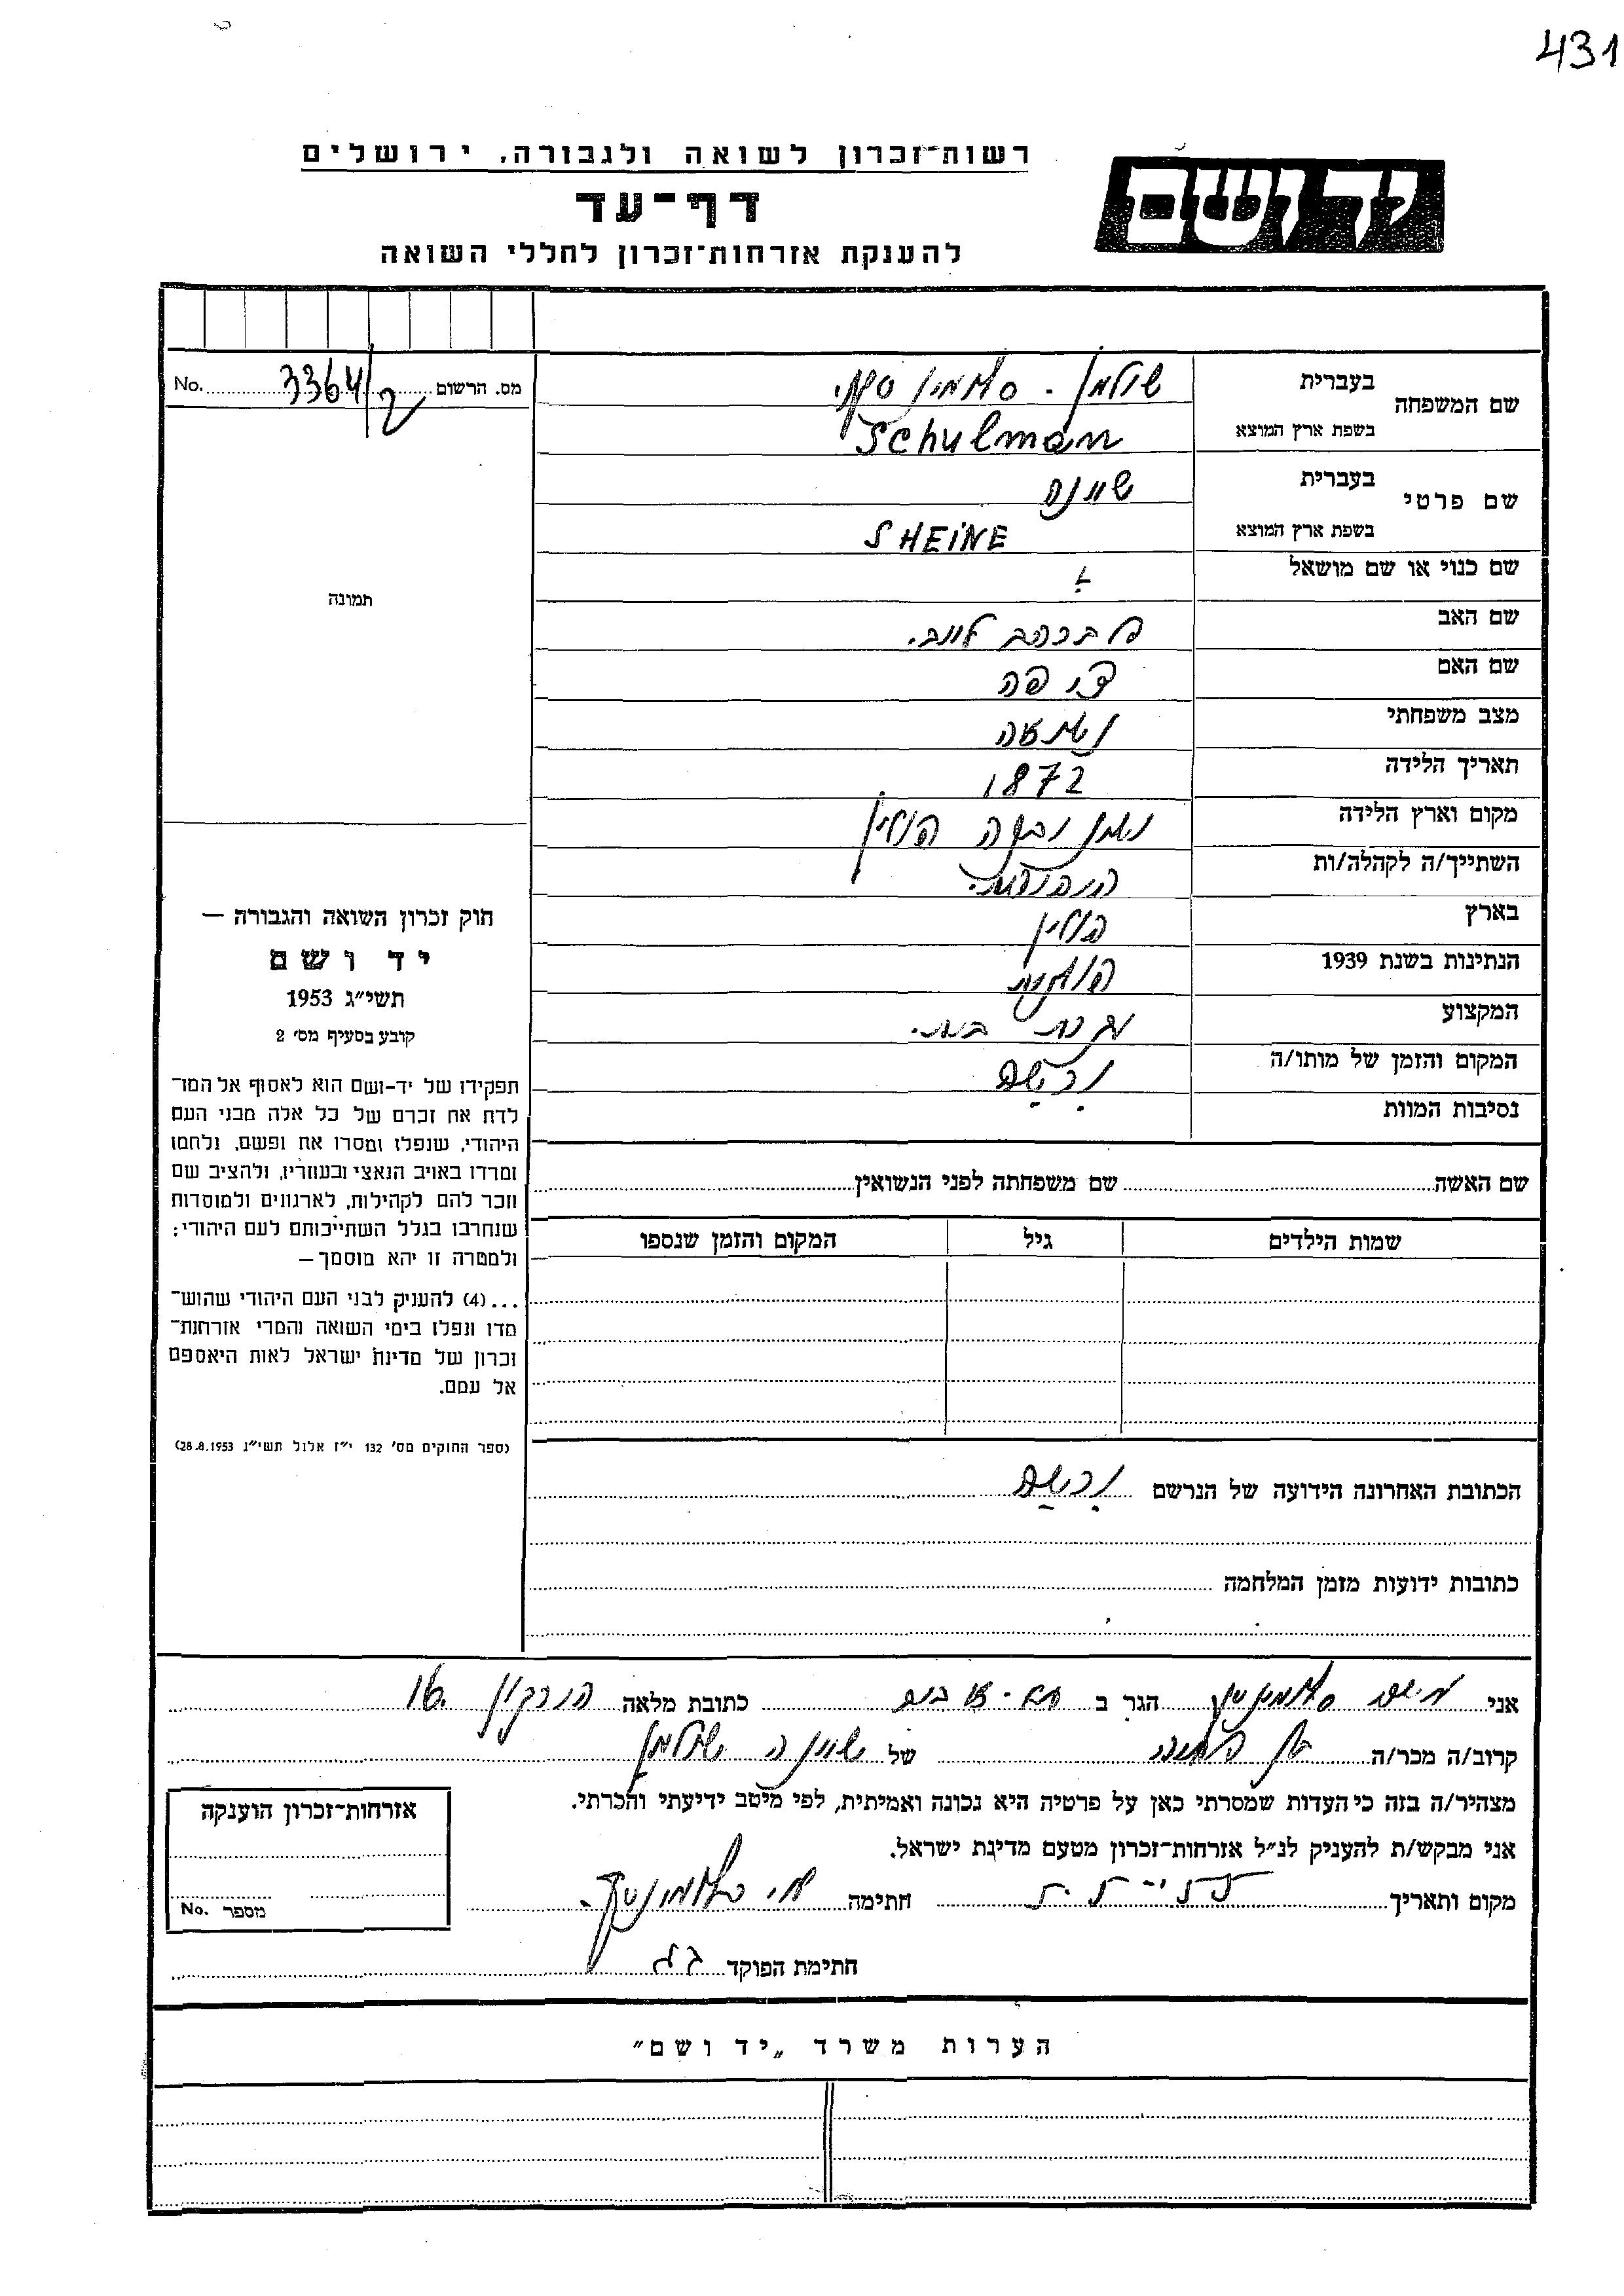 431
רשות־זכרון לשואה ולגבורה, ירושלים
יד ושם
דף־עד
להענקת אזרחות־זכרון לחללי השואה
מס. הרשום 3364 No.
שם המשפחה
בעברית שולמן -
בשפת ארץ המוצא Schulman
שם פרטי
בעברית שיינה
בשפת ארץ המוצא SHEINE
שם כנוי או שם מושאל
שם האב אברהם לייב.
שם האם ציפה
מצב משפחתי נשואה
תאריך הלידה 1872
מקום וארץ הלידה פולין
השתייך/ה לקהלה/ות
בארץ פולין
הנתינות בשנת 1939 פולנית
המקצוע עקרת בית.
המקום והזמן של מותו/ה ורשה
נסיבות המוות
תמונה
חוק זכרון השואה והגבורה —
יד ושם
תשי״ג 1953
קובע בסעיף מס׳ 2
תפקידו של יד-ושם הוא לאסוף אל המו־
לדת את זכרם של כל אלה מבני העם
היהודי, שנפלו ומסרו את נפשם, נלחמו
ומרדו באויב הנאצי ובעוזריו, ולהציב שם
וזכר להם לקהילות, לארגונים ולמוסדות
שנחרבו בגלל השתייכותם לעם היהודי;
ולמטרה זו יהא מוסמך —
...(4) להעניק לבני העם היהודי שהוש־
מדו ונפלו בימי השואה והמרי אזרחות־
זכרון של מדינת ישראל לאות היאספם
אל עמם.
(ספר החוקים מס׳ 132 י״ז אלול תשי״ג 28.8.1953)
שם האשה שם משפחתה לפני הנשואין
שמות הילדים גיל המקום והזמן שנספו
הכתובת האחרונה הידועה של הנרשם ורשה
כתובות ידועות מזמן המלחמה
אני הגר ב תל-אביב כתובת מלאה הירקון 16
קרוב/ה מכר/ה בן של שיינה שולמן
מצהיר/ה בזה כי העדות שמסרתי כאן על פרטיה היא נכונה ואמיתית, לפי מיטב ידיעתי והכרתי.
אני מבקש/ת להעניק לנ״ל אזרחות־זכרון מטעם מדינת ישראל.
מקום ותאריך חתימה
חתימת הפוקד
אזרחות־זכרון הוענקה
מספר No.
הערות משרד „יד ושם״